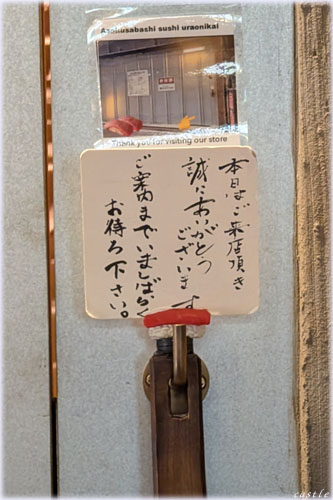 Asakusabashi sushi uraonikai
Thank you for visiting our store
本日はご来店頂き
誠にありがとう
ございます
ご案内までいましばらく
お待ち下さい。
castle